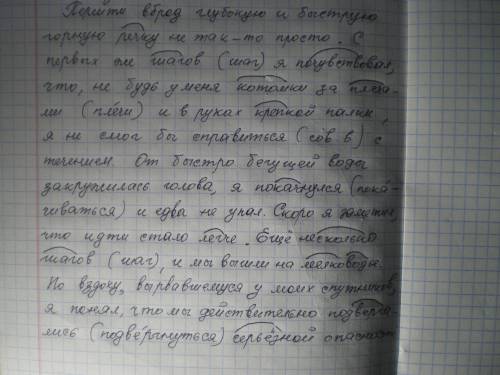 Перейти вброд глубокую и быструю
горную речку не так-то просто. С
первых же шагов (шаг) я почувствовал,
что, не будь у меня котомки за плеча-
ми (плечи) и в руках крепкой палки,
я не смог бы справиться (сов в) с
течением. От быстро бегущей воды
закружилась голова, я покачнулся (пока-
чиваться) и едва не упал. Скоро я заметил,
что идти стало легче. Ещё несколько
шагов (шаг), и мы вышли на мелководье.
По вздоху, вырвавшемуся у моих спутников,
я понял, что мы действительно подверга-
лись (подвергнуться) серьёзной опасности